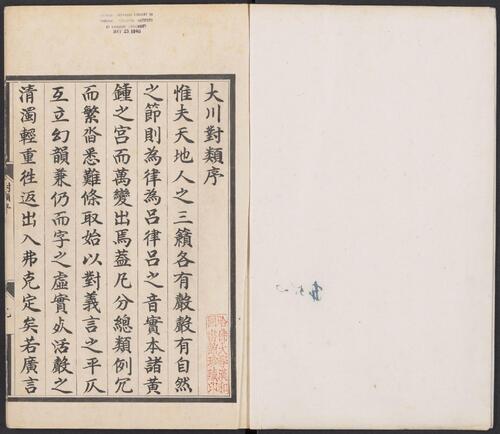 大川對類序
惟夫天地人之三籟各有聲聲有自然
之節則為律為呂律呂之音實本諸黃
鍾之宮而萬變出焉蓋凡分總類例冗
而繁沓悉難條取始以對義言之平仄
互立幻韻兼仍而字之虛實死活聲之
清濁輕重徃返出入弗克定矣若廣言
MAY 23 1940